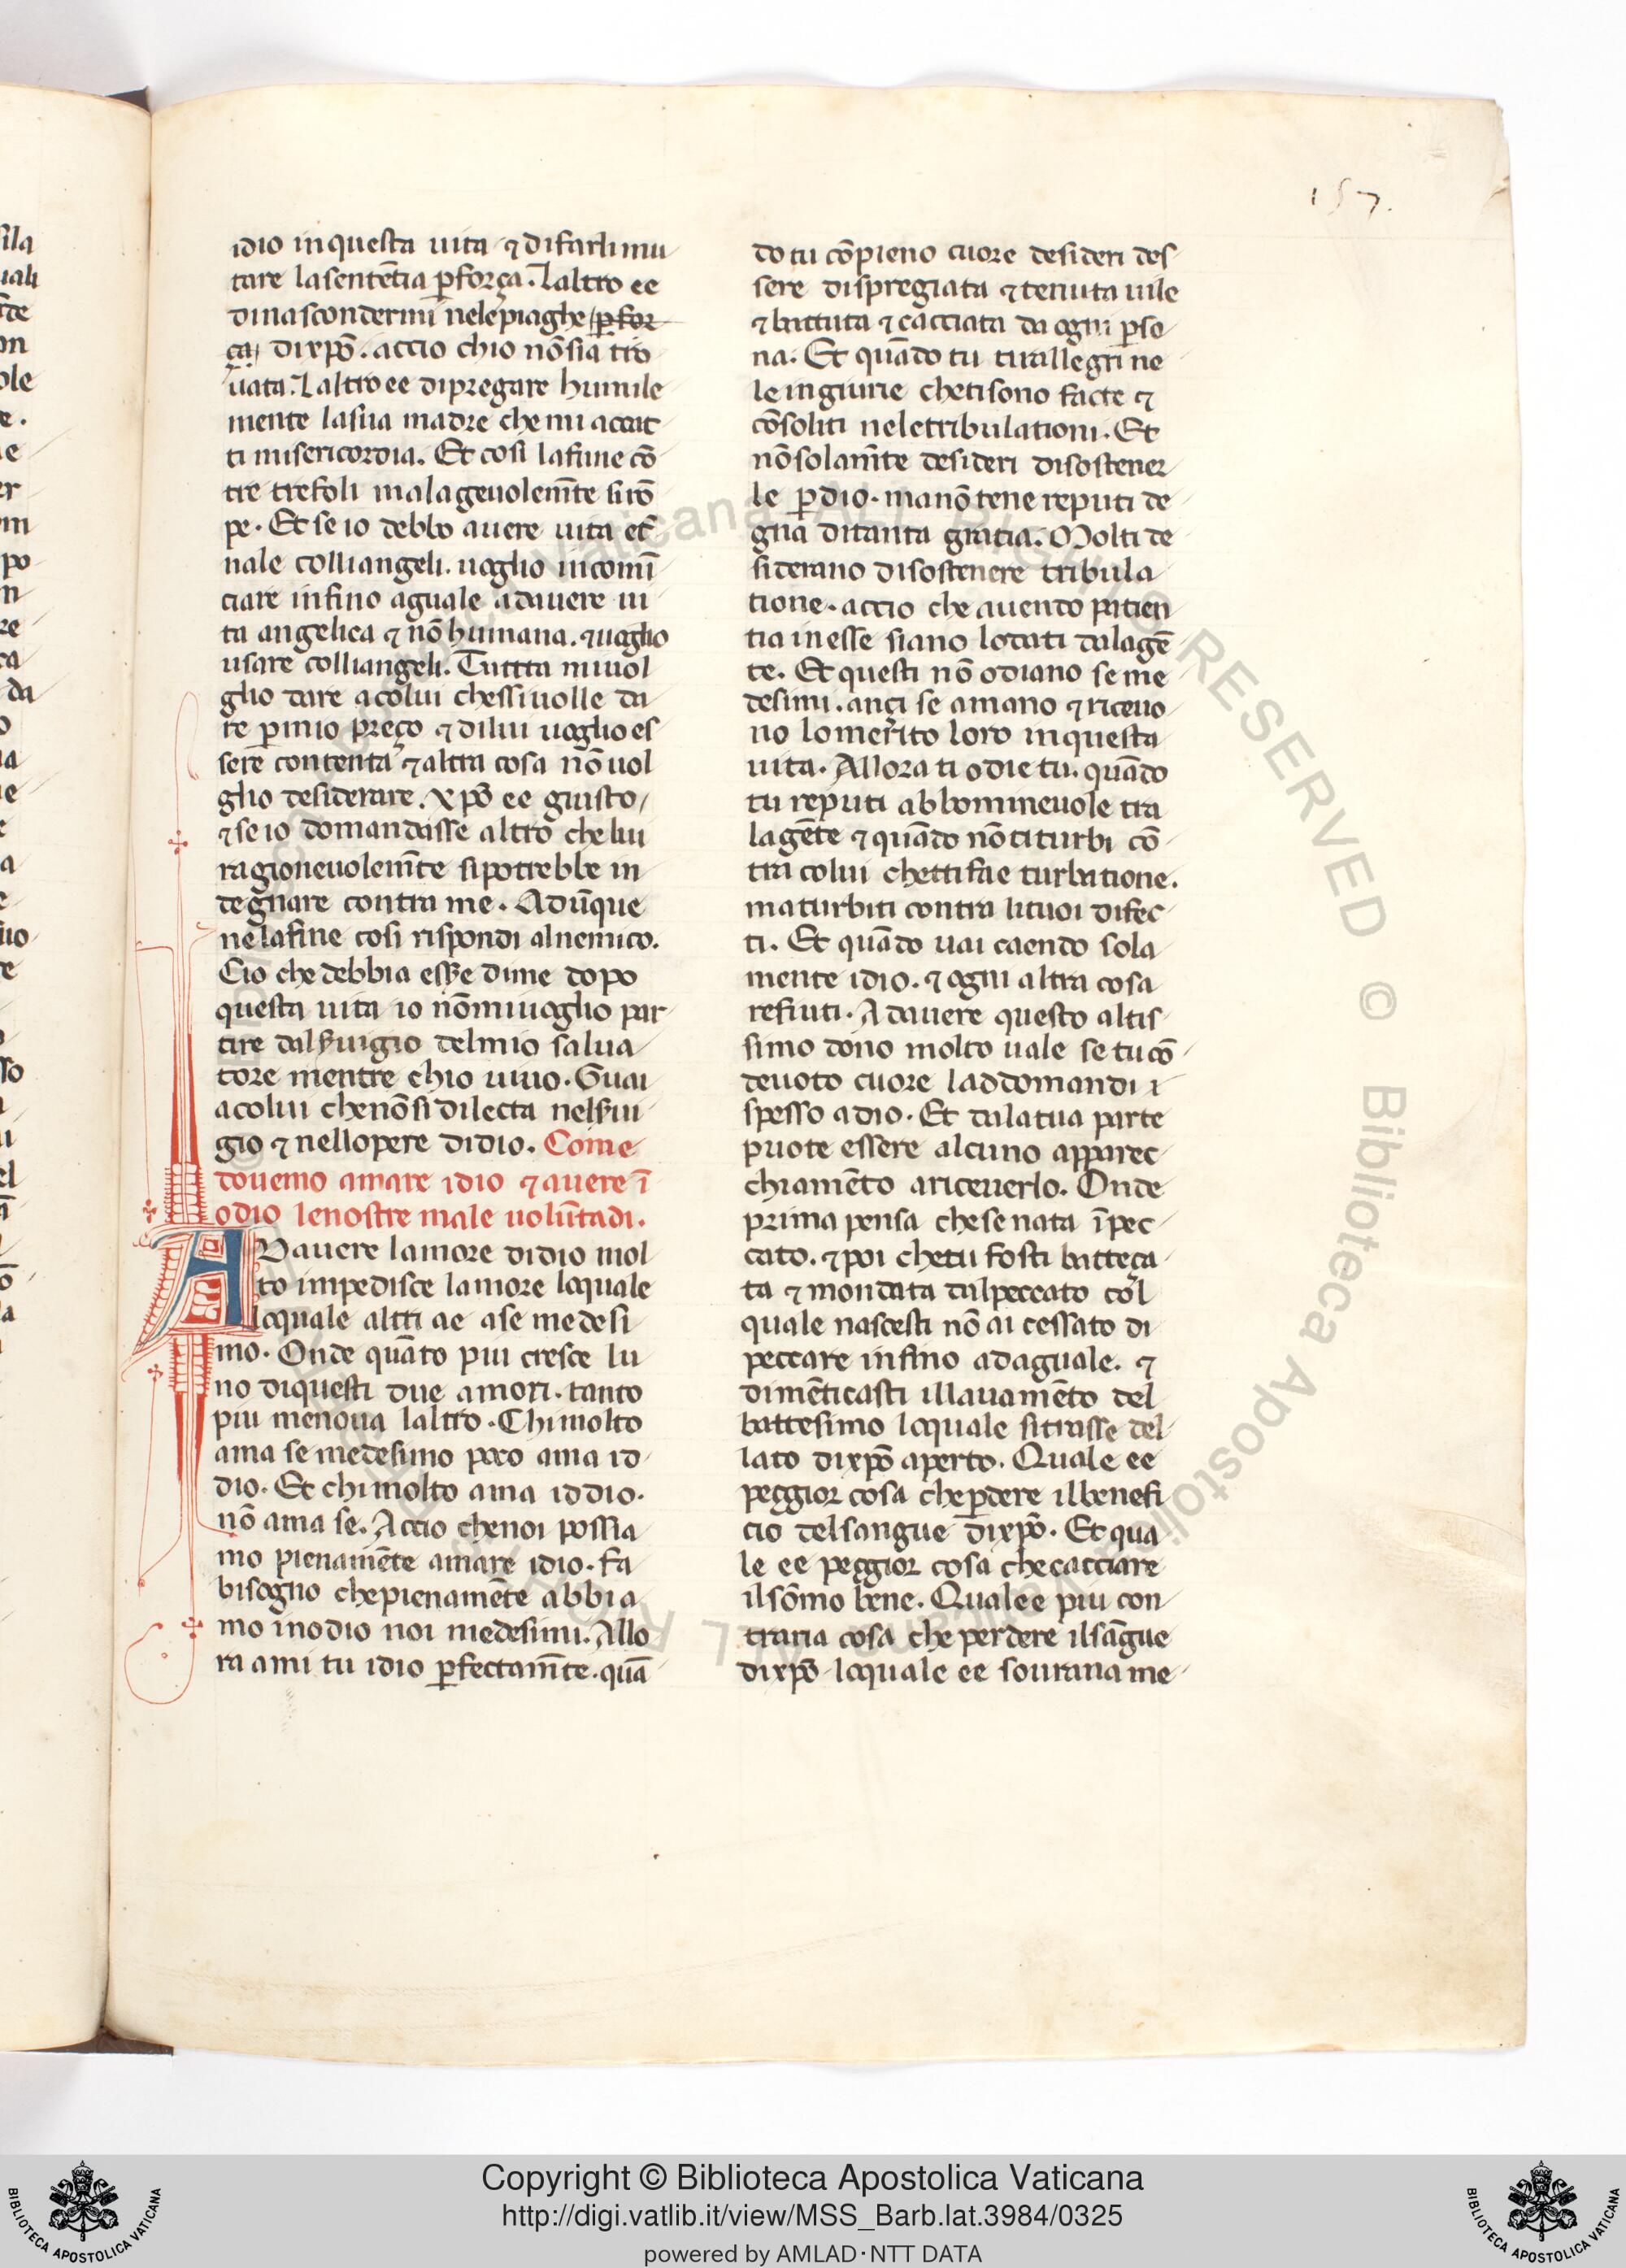 157.
idio in questa uita ⁊ difarli mu
tare lasentētia ꝑforça. Laltro ee
dinascondermi nelepiaghe ꝑfor
ça dixp̄o. accio chio nō sia tro
uata. Laltro ee dipregare humile
mente lasua madre che mi accat
ti misericordia. Et cosi lafune cō
tre trefoli malageuolem̄te si rō
pe. Et se io debbo auere uita et̄
nale colliangeli. uoglio incomī
ciare infino aguale adauere ui
ta angelica ⁊ nō humana. ⁊ uoglio
usare colliangeli. Tuttta miuol
glio dare acolui chessi uolle da
re ꝑ mio preço ⁊ dilui uoglio es
sere contenta ⁊ altra cosa nō uol
glio desiderare. xp̄o ee giusto/
⁊ se io domandasse altro che lui
ragioneuolem̄te sipotrebbe in
degnare contra me. Adūque
nelafine cosi rispondi alnemico.
Cio che debbia eſſe dime dopo
questa uita io nō mi uoglio par
tire dalſuigio delmio salua
tore mentre chio uiuo. Guai
acolui chenō si dilecta nelſui
gio ⁊ nellopere didio. Come
douemo amare idio ⁊ auere ī
odio lenostre male uolūtadi.
ADauere lamore didio mol
to impedisce lamore loquale
loquale altri ae ase medesi
mo. Onde quāto piu cresce lu
no diquesti due amori. tanto
piu menoua laltro. Chi molto
ama se medesimo poco ama id
dio. Et chi molto ama iddio.
nō ama se. Accio chenoi possia
mo pienamēte amare idio. fa
bisogno chepienamēte abbia
mo inodio noi medesimi. Allo
ra ami tu idio ꝑfectam̄te. quā
do tu cō pieno cuore desideri des
sere dispregiata ⁊ tenuta uile
⁊ battuta ⁊ cacciata da ogni ꝑso
na. Et quādo tu tirallegri ne
le ingiurie cheti sono facte ⁊
cōsoliti neletribulationi. Et
nō solam̄te desideri disostener
le ꝑ dio. ma nō tene reputi de
gna ditanta gratia. Molti de
siderano disostenere tribula
tione. accio che auendo patien
tia in esse siano lodati dalagē
te. Et questi nō odiano se me
desimi. ançi se amano ⁊ riceuo
no lo merito loro inquesta
uita. Allora ti odie tu. quādo
tu reputi abbomineuole tra
lagēte ⁊ quādo nō titurbi cō
tra colui chetti fae turbatione.
ma turbiti contra lituoi difec
ti. Et quādo uai caendo sola
mente idio. ⁊ ogni altra cosa
refiuti. Adauere questo altis
simo dono molto uale se tu cō
deuoto cuore laddomandi i
spesso adio. Et dalatua parte
puote essere alcuno apparec
chiamēto ariceuerlo. Onde
prima pensa chese nata īpec
cato. ⁊ poi chetu fosti batteça
ta ⁊ mondata dalpeccato col
quale nascesti nō ai cessato di
peccare infino adaguale. ⁊
dimēticasti illauamēto del
battesimo loquale sitrasse del
lato dixp̄o aperto. Quale ee
peggior cosa cheꝑdere ilbenefi
cio delsangue dixp̄o. Et qua
le ee peggior cosa checacciare
ilsōmo bene. Qualee piu con
traria cosa che perdere ilsāgue
dixp̄o loquale ee sourana me
Copyright © Biblioteca Apostolica Vaticana
http://digi.vatlib.it/view/MSS_Barb.lat.3984/0325
powered by AMLAD·NTT DATA